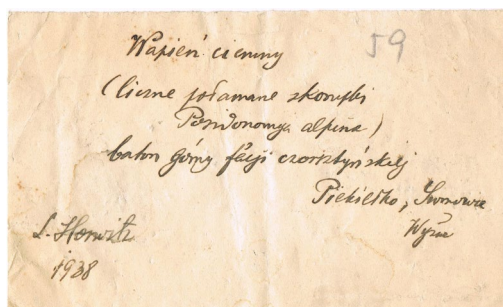 Wapień ciemny 59
(liczne połamane skorupki
Posidonomya alpina)
baton górny facji czorsztyńskiej
Piekiełko, Szczawnica
Wyżna
L. Horwitz
1938